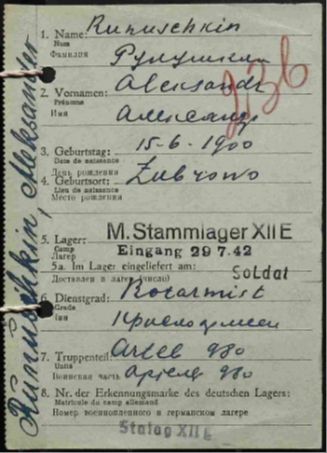 1. Name: Runuschkin
Nom
Фамилия
2. Vornamen: Aleksandr
Prénoms
Имя Александр
3. Geburtstag: 15-6-1900
Date de naissance
День рождения
4. Geburtsort: Zubrowo
Lieu de naissance
Место рождения
5. Lager: M. Stammlager XII E
Camp
Лагер Eingang 29 7.42
5a. Im Lager eingeliefert am: Soldat
Доставлен в лагер (число)
6. Dienstgrad: Rotarmist
Grade
Чин
7. Truppenteil: 980
Unité
Воинская часть 980
8. Nr. der Erkennungsmarke des deutschen Lagers:
Matricule du camp allemand
Номер военнопленного в германском лагере
Stalag XII E
Runuschkin, Aleksander